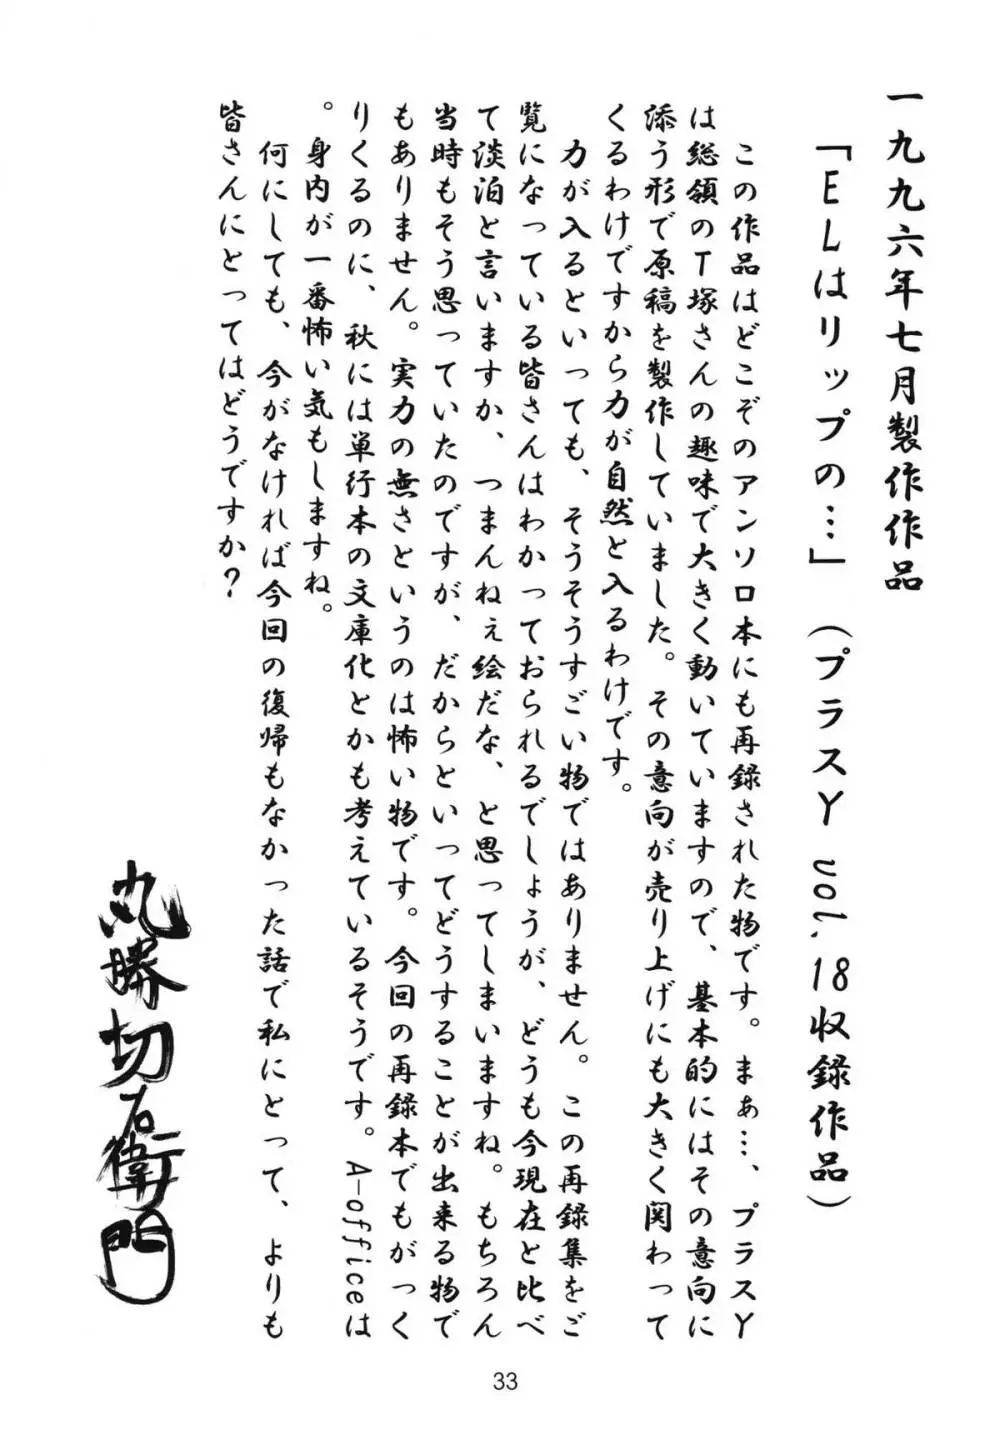 一九九六年七月製作作品
「ELはリップの…」(プラスY vol.18収録作品)
この作品はどこぞのアンソロ本にも再録された物です。まぁ…、プラスY
は総領のT塚さんの趣味で大きく動いていますので、基本的にはその意向に
添う形で原稿を製作していました。その意向が売り上げにも大きく関わって
くるわけですから力が自然と入るわけです。
力が入るといっても、そうそうすごい物ではありません。この再録集をご
覧になっている皆さんはわかっておられるでしょうが、どうも今現在と比べ
て淡泊と言いますか、つまんねぇ絵だな、と思ってしまいますね。もちろん
当時もそう思っていたのですが、だからといってどうすることが出来る物で
もありません。実力の無さというのは怖い物です。今回の再録本でもがっく
りくるのに、秋には単行本の文庫化とかも考えているそうです。A-officeは
。身内が一番怖い気もしますね。
何にしても、今がなければ今回の復帰もなかった話で私にとって、よりも
皆さんにとってはどうですか?
丸勝切右衛門
33